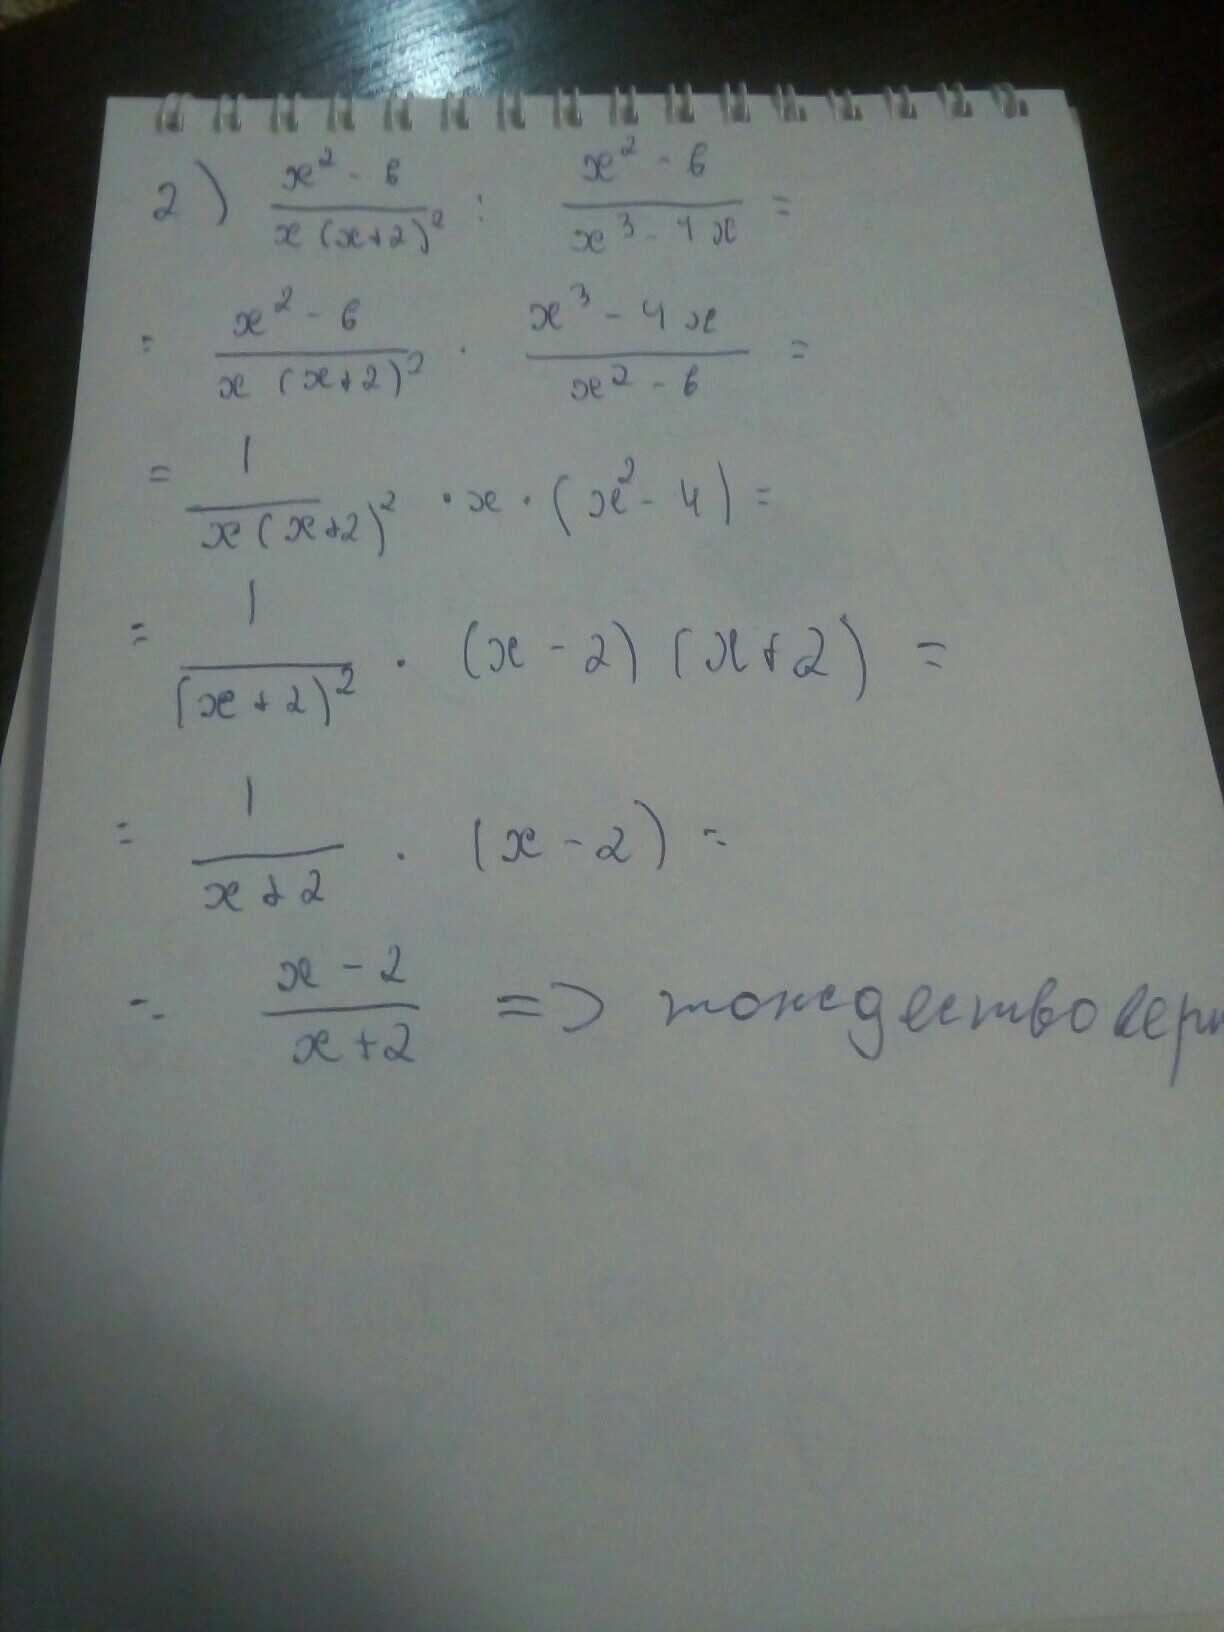 2) (x² - 6)/(x(x+2)²) : (x² - 6)/(x³ - 4x) =
= (x² - 6)/(x(x+2)²) · (x³ - 4x)/(x² - 6) =
= 1/(x(x+2)²) · x · (x² - 4) =
= 1/(x+2)² · (x - 2)(x+2) =
= 1/(x+2) · (x - 2) =
= (x - 2)/(x+2) => тождество